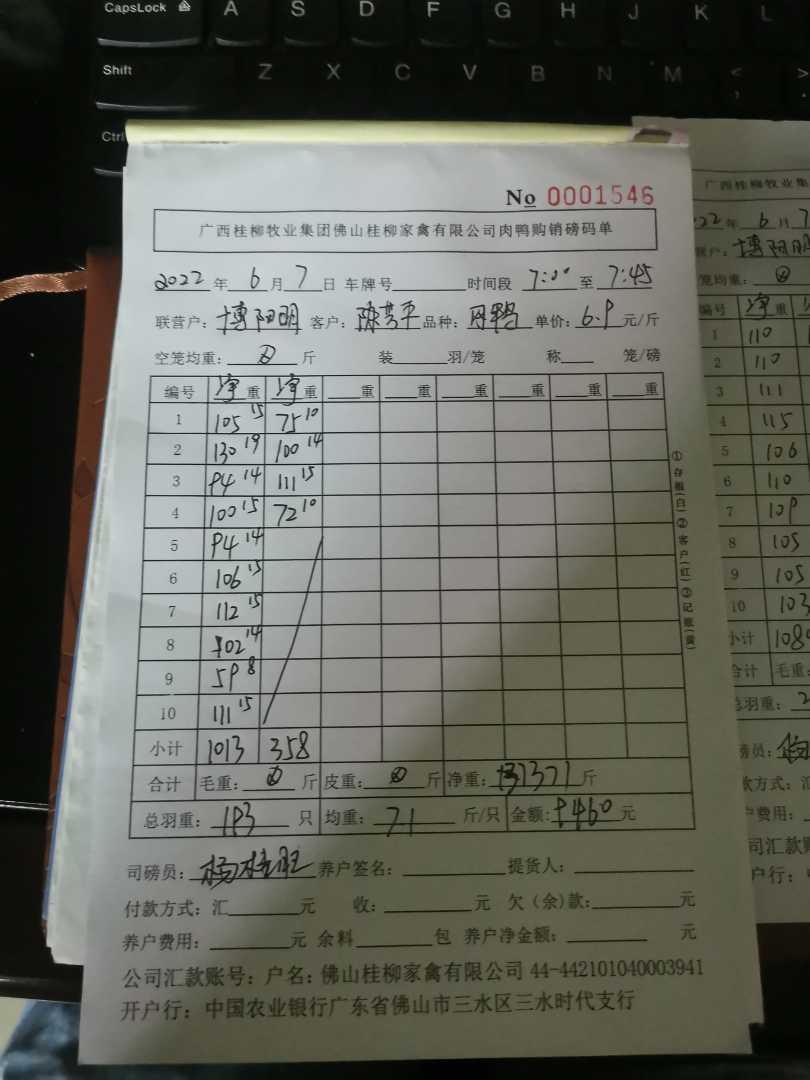 CapsLock A S D F G H J K L
Shift Z X C V B N M < >
Ctrl
No 0001546
广西桂柳牧业集团佛山桂柳家禽有限公司肉鸭购销磅码单
2022 年 6 月 7 日 车牌号 时间段 7:00 至 7:45
联营户: 博阳明 客户: 陈芸平 品种: 丹鸭 单价: 6.9 元/斤
空笼均重: 0 斤 装 羽/笼 称 笼/磅
编号 净重 净重 重 重 重 重 重 重
1 105 15 75 10
2 130 19 100 14
3 94 14 111 15
4 100 15 72 10
5 94 14
6 106 15
7 112 15
8 102 14
9 59 8
10 111 15
小计 1013 358
合计 毛重: 0 斤 皮重: 0 斤 净重: 1371 斤
总羽重: 193 只 均重: 7.1 斤/只 金额: 9460 元
司磅员: 杨桂旺 养户签名: 提货人:
付款方式: 汇 元 收: 元 欠(余)款: 元
养户费用: 元 余料 包 养户净金额: 元
公司汇款账号: 户名: 佛山桂柳家禽有限公司 44-442101040003941
开户行: 中国农业银行广东省佛山市三水区三水时代支行
①存根(白)②客户(红)③记账(黄)
广西桂柳牧业集
2022 年 6 月 7
户: 博阳明
笼均重: 0
编号 净重
1 110
2 110
3 111
4 115
5 106
6 110
7 109
8 105
9 105
10 103
小计 108
合计 毛重:
总羽重: 2
磅员: 杨
款方式: 汇
户费用:
司汇款账
户行: